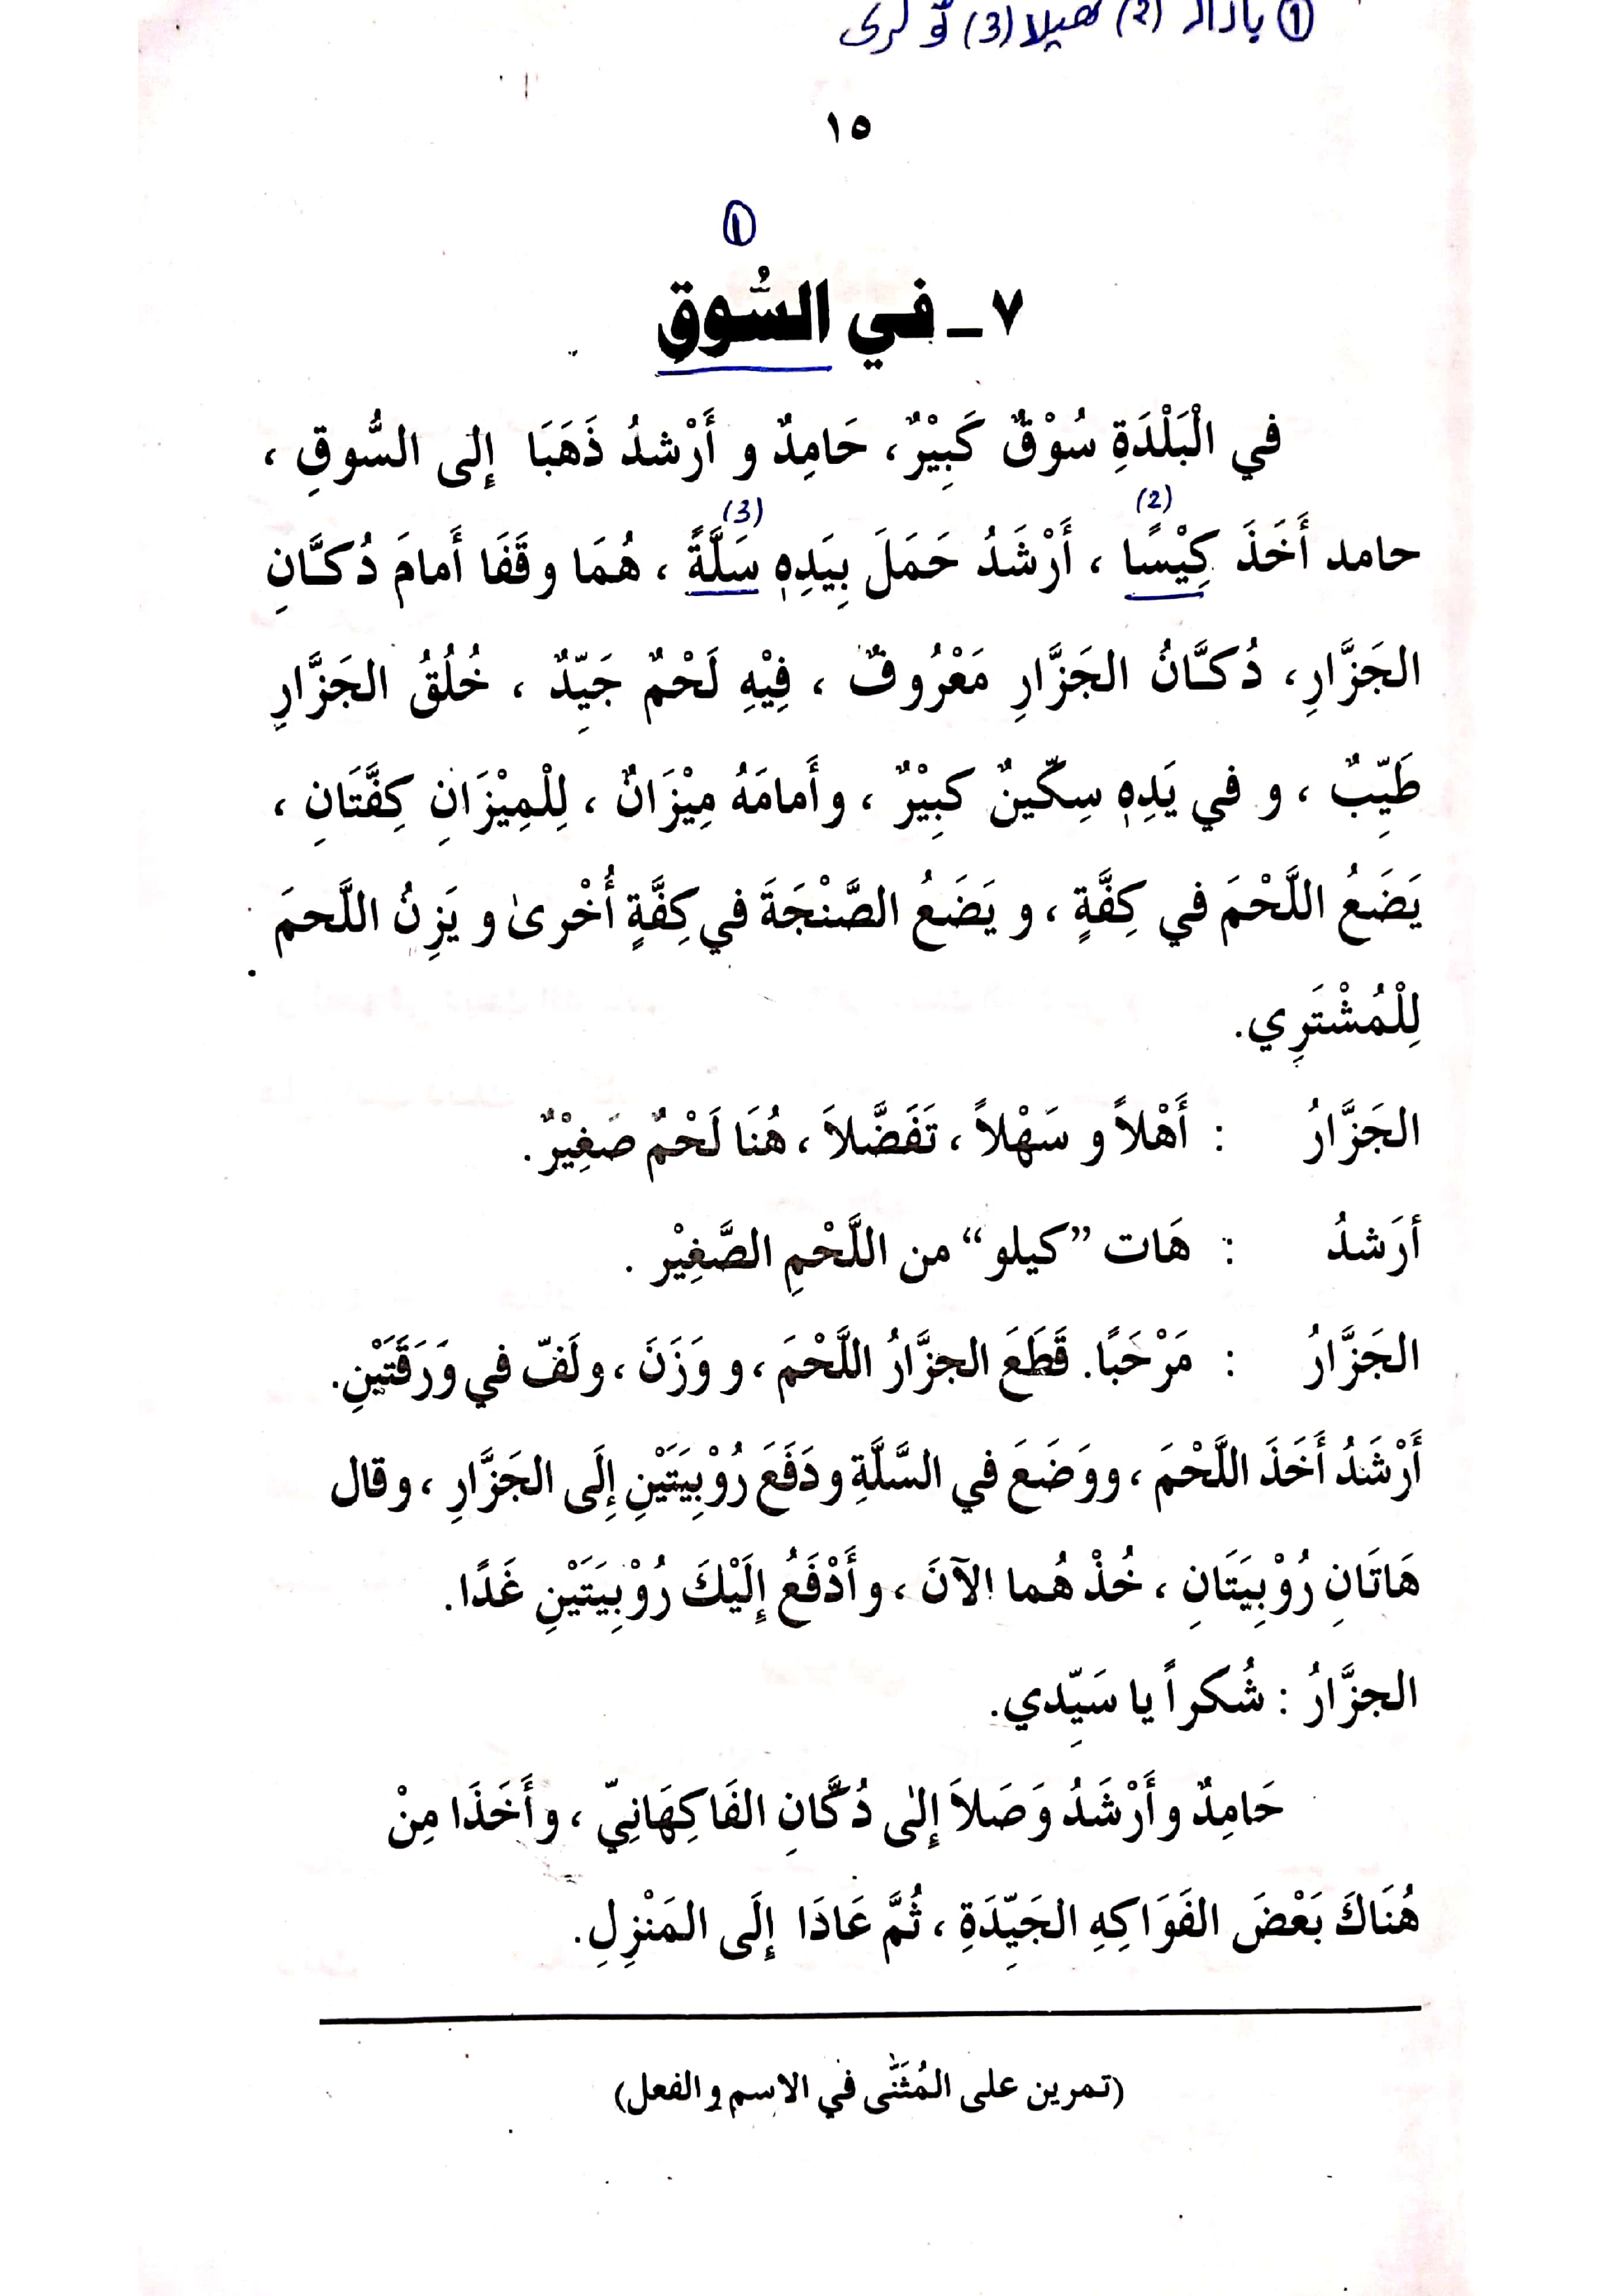 ① بازار (2) تھیلا (3) ٹوکری
١٥
①
٧ ـ في السُّوقِ
في الْبَلْدَةِ سُوْقٌ كَبِيْرٌ، حَامِدٌ و أَرْشدُ ذَهَبَا إِلى السُّوقِ ،
(2)
(3)
حامد أَخَذَ كِيْسًا ، أَرْشَدُ حَمَلَ بِيَدِهٖ سَلَّةً ، هُمَا وقَفَا أَمامَ دُكَّانِ
الجَزَّارِ، دُكَّانُ الجَزَّارِ مَعْرُوفٌ ، فِيْهِ لَحْمٌ جَيِّدٌ ، خُلُقُ الجَزَّارِ
طَيِّبٌ ، و في يَدِهٖ سِكِّينٌ كبِيْرٌ ، وأَمامَهُ مِيْزَانٌ ، لِلْمِيْزَانِ كِفَّتَانِ ،
يَضَعُ اللَّحْمَ في كِفَّةٍ ، و يَضَعُ الصَّنْجَةَ في كِفَّةٍ أُخْرىٰ و يَزِنُ اللَّحمَ
لِلْمُشْتَرِي.
الجَزَّارُ : أَهْلاً و سَهْلاً ، تَفَضَّلاَ ، هُنَا لَحْمٌ صَغِيْرٌ.
أرَشدُ : هَات ”كيلو“ من اللَّحْمِ الصَّغِيْر .
الجَزَّارُ : مَرْحَبًا. قَطَعَ الجزَّارُ اللَّحْمَ ، و وَزَنَ ، ولَفّ في وَرَقَتَيْنِ.
أَرْشَدُ أَخَذَ اللَّحْمَ ، ووَضَعَ في السَّلَّةِ ودَفَعَ رُوْبِيَتَيْنِ إِلَى الجَزَّارِ ، وقال
هَاتَانِ رُوْبِيَتَانِ ، خُذْ هُما الآنَ ، وأَدْفَعُ إِلَيْكَ رُوْبِيَتَيْنِ غَدًا.
الجزَّارُ : شُكراً يا سَيِّدي.
حَامِدٌ وأَرْشَدُ وَصَلاَ إِلىٰ دُكَّانِ الفَاكِهَانِيّ ، وأَخَذَا مِنْ
هُنَاكَ بَعْضَ الفَوَاكِهِ الجَيِّدَةِ ، ثُمَّ عَادَا إِلَى المَنْزِلِ.
(تمرين على المُثَنَّى في الاسم والفعل)